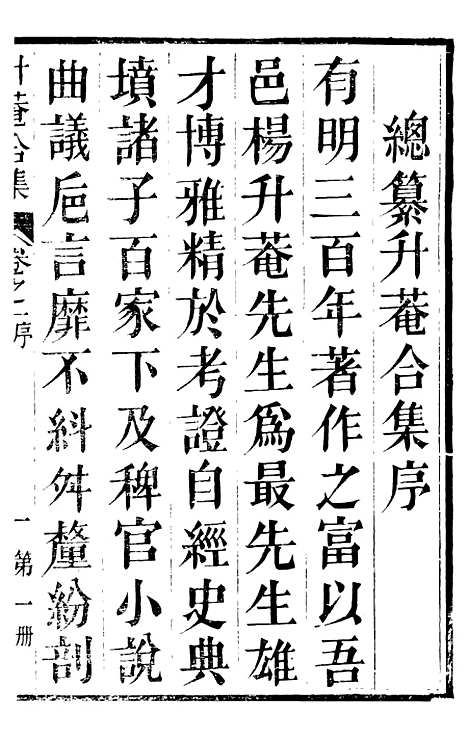 總纂升菴合集序
有明三百年著作之富以吾
邑楊升菴先生爲最先生雄
才博雅精於考證自經史典
墳諸子百家下及稗官小說
曲議巵言靡不糾舛釐紛剖
升菴合集 卷之一序 一 第一册